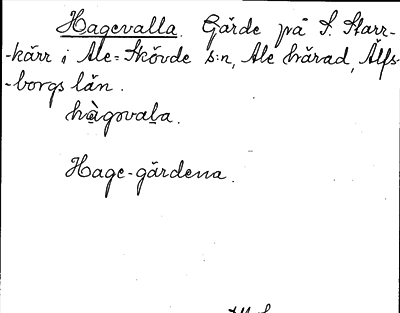 Hagevalla. Gärde på S. Starr-
-kärr i Ale-Skövde s:n, Ale härad, Älfs-
-borgs län.
hàgovala.
Hage-gärdena.